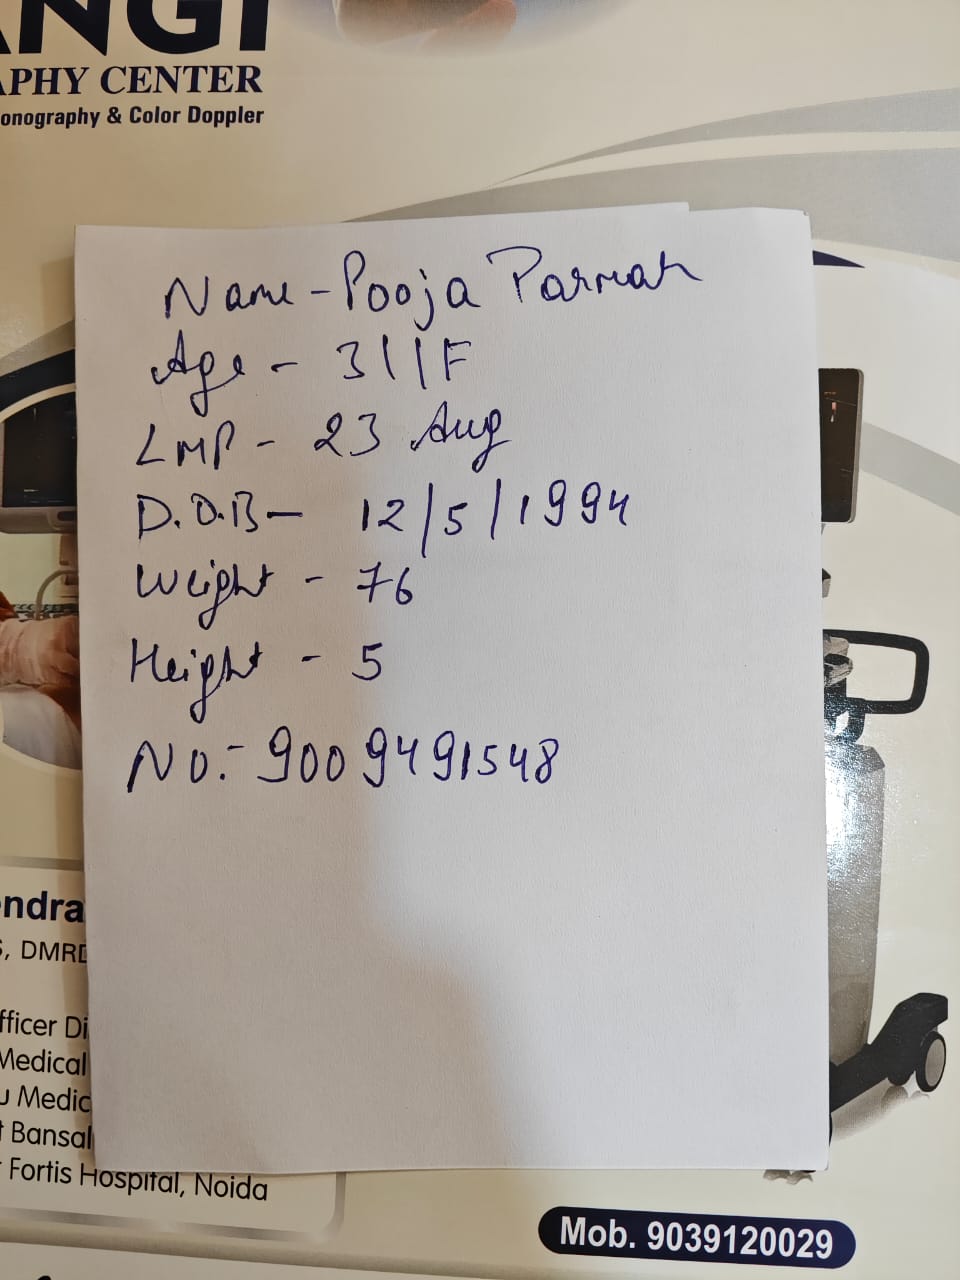 ANGI
APHY CENTER
onography & Color Doppler
Name - Pooja Parmar
Age - 31/F
LMP - 23 Aug
D.O.B - 12/5/1994
Weight - 76
Height - 5
No:- 9009491548
endra
S, DMRD
fficer Di
Medical
u Medic
t Bansal
r Fortis Hospital, Noida
Mob. 9039120029